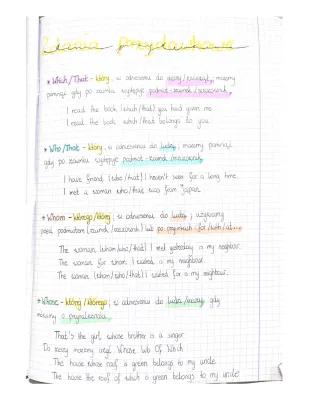 Zdania przydawkowe
* Which/That - który, w odniesieniu do rzeczy/zwierząt, możemy
pominąć gdy po zaimku występuje podmiot - rzeczownik
I read the book (which/that) you had given me
I read the book which/that belongs to you
* Who/That - który, w odniesieniu do ludzi, możemy pominąć
gdy po zaimku występuje podmiot
I have friend (who/that) I haven't seen for a long time
I met a woman who/that was from Japan.
* Whom - którego/której, w odniesieniu do ludzi, używamy
przed podmiotem lub po przyimkach - for/with/at...
The woman (whom/who/that) I met yesterday is my neighbor.
The woman for whom I waited is my neighbour.
The woman (whom/who/that) I waited for is my neighbour.
* Whose - której/którego, w odniesieniu do ludzi/rzeczy gdy
mówimy o przynależności
That's the girl whose brother is a singer
Do rzeczy możemy użyć Whose lub Of Which
The house whose roof is green belongs to my uncle
The house the roof of which is green belongs to my uncle